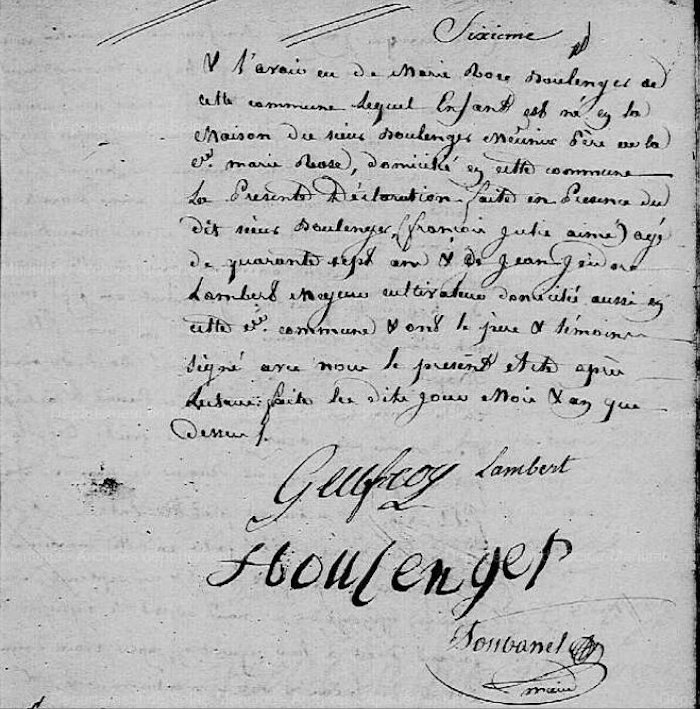 Sixieme
& l'avoir eu de Marie Rose Boulenger de
cette commune lequel Enfant est né en la
Maison du sieur Boulenger Meunier Père de la
marie Rose, domicilié en cette commune
La Presente Déclaration faite en Presence du
dit sieur Boulenger, (françois julie aimé) agé
de quarante sept ans & de Jean
Lambert Majeur cultivateur domicilié aussi en
cette commune & ont le père & témoins
signé avec nous le présent acte après
Lecture faite les dits jour Mois & an que
Dessus
Geufroy Lambert
Boulenger
maire